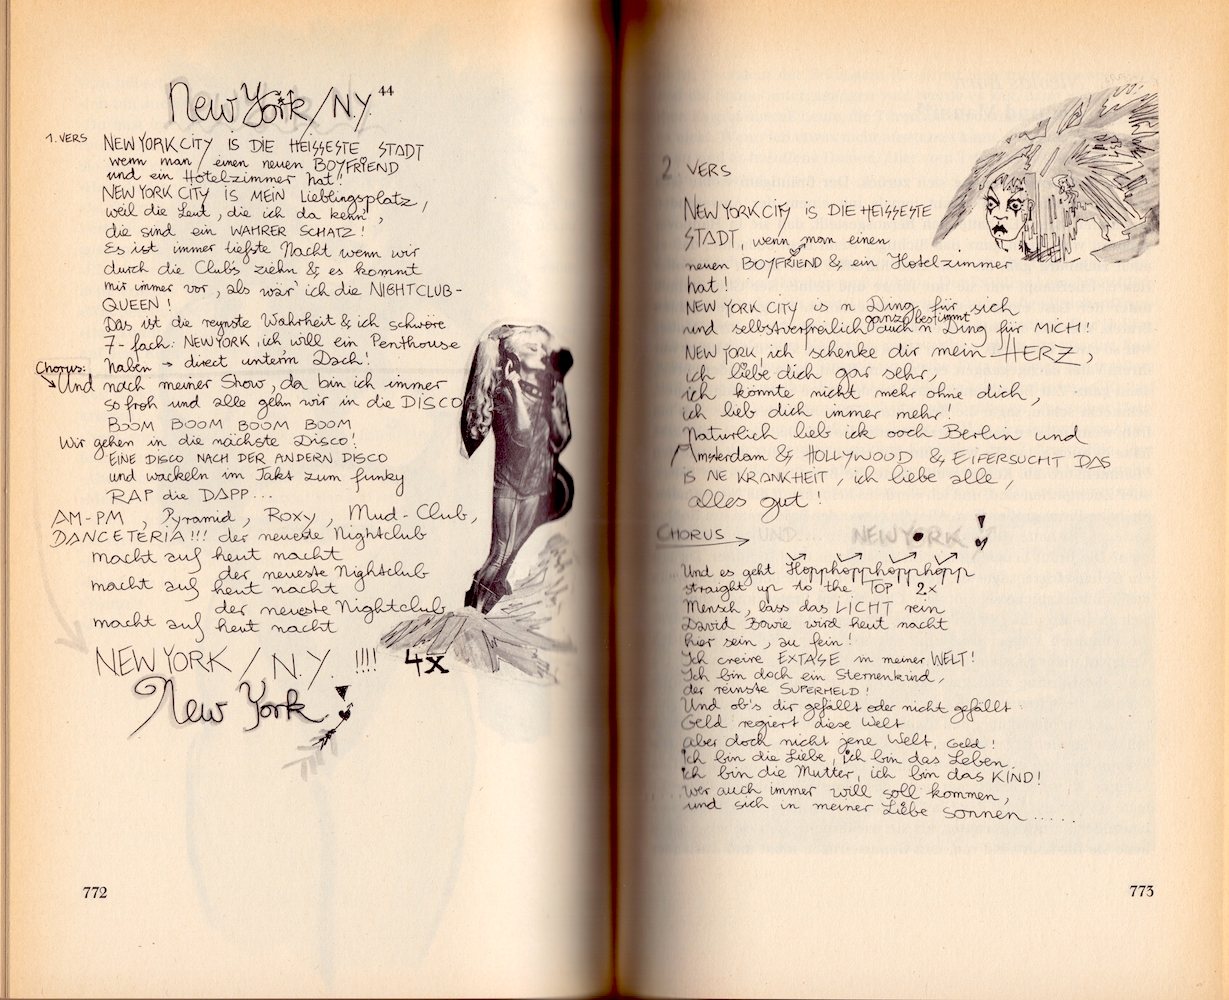 New York/N.Y. 44
1. VERS
NEW YORK CITY IS DIE HEISSESTE STADT
wenn man / einen neuen BOYFRIEND
und ein Hotelzimmer hat!
NEW YORK CITY IS MEIN Lieblingsplatz,
weil die Leut, die ich da kenn,
die sind ein WAHRER SCHATZ!
Es ist immer tiefste Nacht wenn wir
durch die Clubs ziehn & es kommt
mir immer vor, als wär' ich die NIGHTCLUB-
QUEEN!
Das ist die reinste Wahrheit & ich schwöre
7-fach: NEW YORK, ich will ein Penthouse
haben → direct unterm Dach!
Chorus:
Und nach meiner Show, da bin ich immer
so froh und alle gehn wir in die DISCO
BOOM BOOM BOOM BOOM
Wir gehen in die nächste Disco!
EINE DISCO NACH DER ANDERN DISCO
und wackeln im Takt zum funky
RAP die DAPP...
AM-PM, Pyramid, Roxy, Mud-Club,
DANCETERIA!!! der neueste Nightclub
macht auf heut nacht
der neueste Nightclub
macht auf heut nacht
der neueste Nightclub
macht auf heut nacht
NEW YORK / N.Y. !!!! 4x
New York!
772
2. VERS
NEW YORK CITY IS DIE HEISSESTE
STADT, wenn man einen
neuen BOYFRIEND & ein Hotelzimmer
hat!
NEW YORK CITY is n Ding für sich
ganz bestimmt
und selbstverfreilich auch n' Ding für MICH!
NEW YORK, ich schenke dir mein HERZ,
ich liebe dich gar sehr,
ich könnte nicht mehr ohne dich,
ich lieb dich immer mehr!
Natürlich lieb ick ooch Berlin und
Amsterdam & HOLLYWOOD & EIFERSUCHT DAS
IS NE KRANKHEIT, ich liebe alle,
alles gut!
CHORUS → UND... NEW YORK!
Und es geht Hopphopphopphopp
straight up to the TOP 2x
Mensch, lass das LICHT rein
David Bowie wird heut nacht
hier sein, au fein!
Ich creire EXTASE in meiner WELT!
Ich bin doch ein Sternenkind,
der reinste SUPERHELD!
Und ob's dir gefällt oder nicht gefällt:
Geld regiert diese Welt
aber doch nicht jene Welt, Geld!
Ich bin die Liebe, ich bin das Leben,
ich bin die Mutter, ich bin das KIND!
Wer auch immer will soll kommen,
und sich in meiner Liebe sonnen.....
773